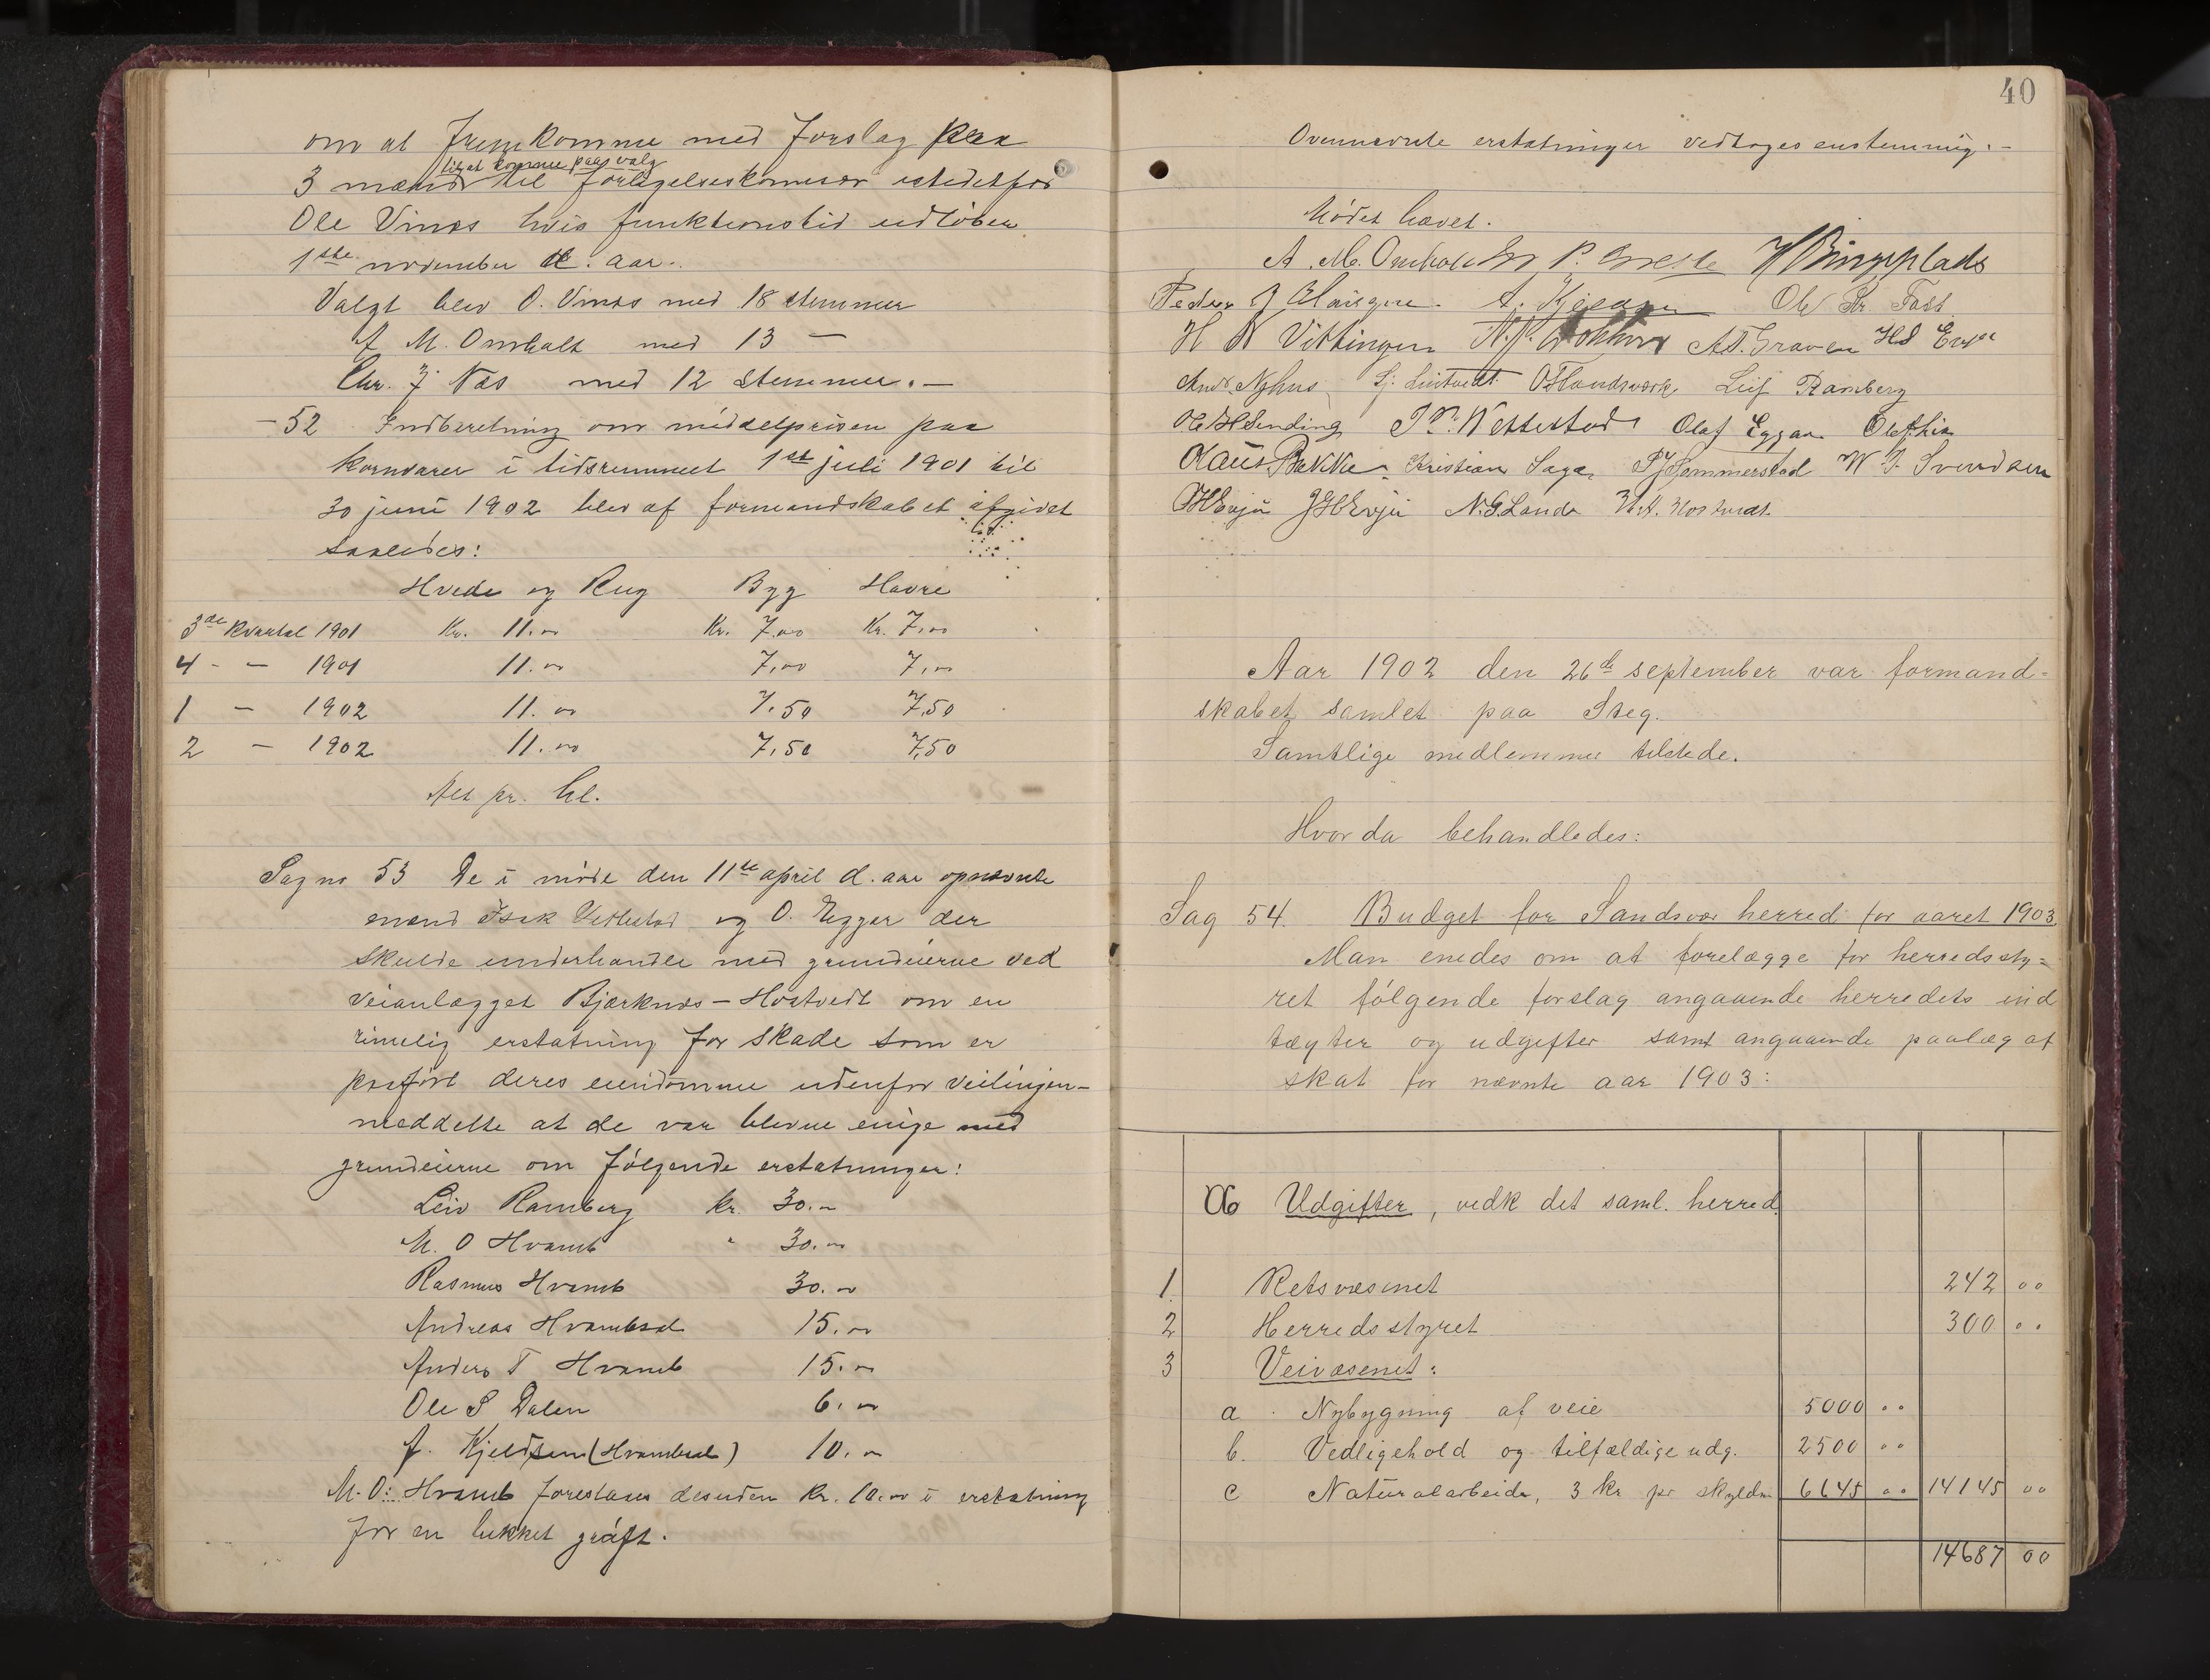 om at fremkomme med forslag paa
til at komme paa valg
3 mænd til forligelseskommisær istedetfor
Ole Vinæs hvis funktionstid udløber
1ste november d. aar.
Valgt blev O. Vinæs med 18 stemmer
A M. Omholt med 13 —
Chr. J Næs med 12 stemmer. —
— 52 Indberetning om middelprisen paa
kornvarer i tidsrummet 1ste juli 1901 til
30 juni 1902 blev af formandskabet afgivet
saaledes:
Hvede og Rug Byg Havre
3de kvartal 1901 Kr. 11.00 Kr. 7.00 Kr. 7,00
4 - — 1901 11.00 7,00 7,00
1 — 1902 11.00 7.50 7,50
2 — 1902 11.00 7,50 7,50
Alt pr. hl.
Sag no 53 De i møde den 11te april d. aar opnævnte
mænd Isak Vettestad og O. Eggar der
skulde underhandle med grundeierne ved
veianlægget Bjørknæs — Hostvedt om en
rimelig erstatning for skade som er
paaført deres eiendomme udenfor veilinjen—
meddelte at de var blevne enige med
grundeierne om følgende erstatninger:
Leiv Ramberg kr. 30.00
M. O Hvamb " 30.00
Rasmus Hvamb 30.00
Andreas Hvambsal 15.00
Anders T Hvamb 15.00
Ole S Dalen 6.00
A. Kjeldsen (Hvambsal) 10.00
M. O. Hvamb foreslaaes desuden kr. 10.00 i erstatning
for en lukket grøft.
40
Ovennævnte erstatninger vedtoges enstemmig. —
Mødet hævet.
A. M. Omholt
Peder J Ole Kr. Fast
H N Vittingen A.T. Graven
And. Nyhus O Landsværk Leif Ramberg
Ole H Sending Wettestad Olaf Eggar
Claus Bakke Kristian Saga Sommerstad W. J. Svendsen
O H Evju J H Evju N. G. Lande
Aar 1902 den 26de september var formand-
skabet samlet paa Steg.
Samtlige medlemmer tilstede.
Hvor da behandledes:
Sag 54. Budget for Sandsvær herred for aaret 1903
Man enedes om at forelægge for herredssty=
ret følgende forslag angaaende herredets ind
tægter og udgifter samt angaaende paalæg af
skat for nævnte aar 1903:
Udgifter, vedk det saml. herred.
1. Retsvæsenet 242 00
2 Herredsstyret 300 00
3 Veivæsenet:
a . Nybygning af veie 5000 00
b. Vedligehold og tilfældige udg. 2500 00
c Naturalarbeide, 3 kr pr skyldm 6645 00 14145 00
14687 00